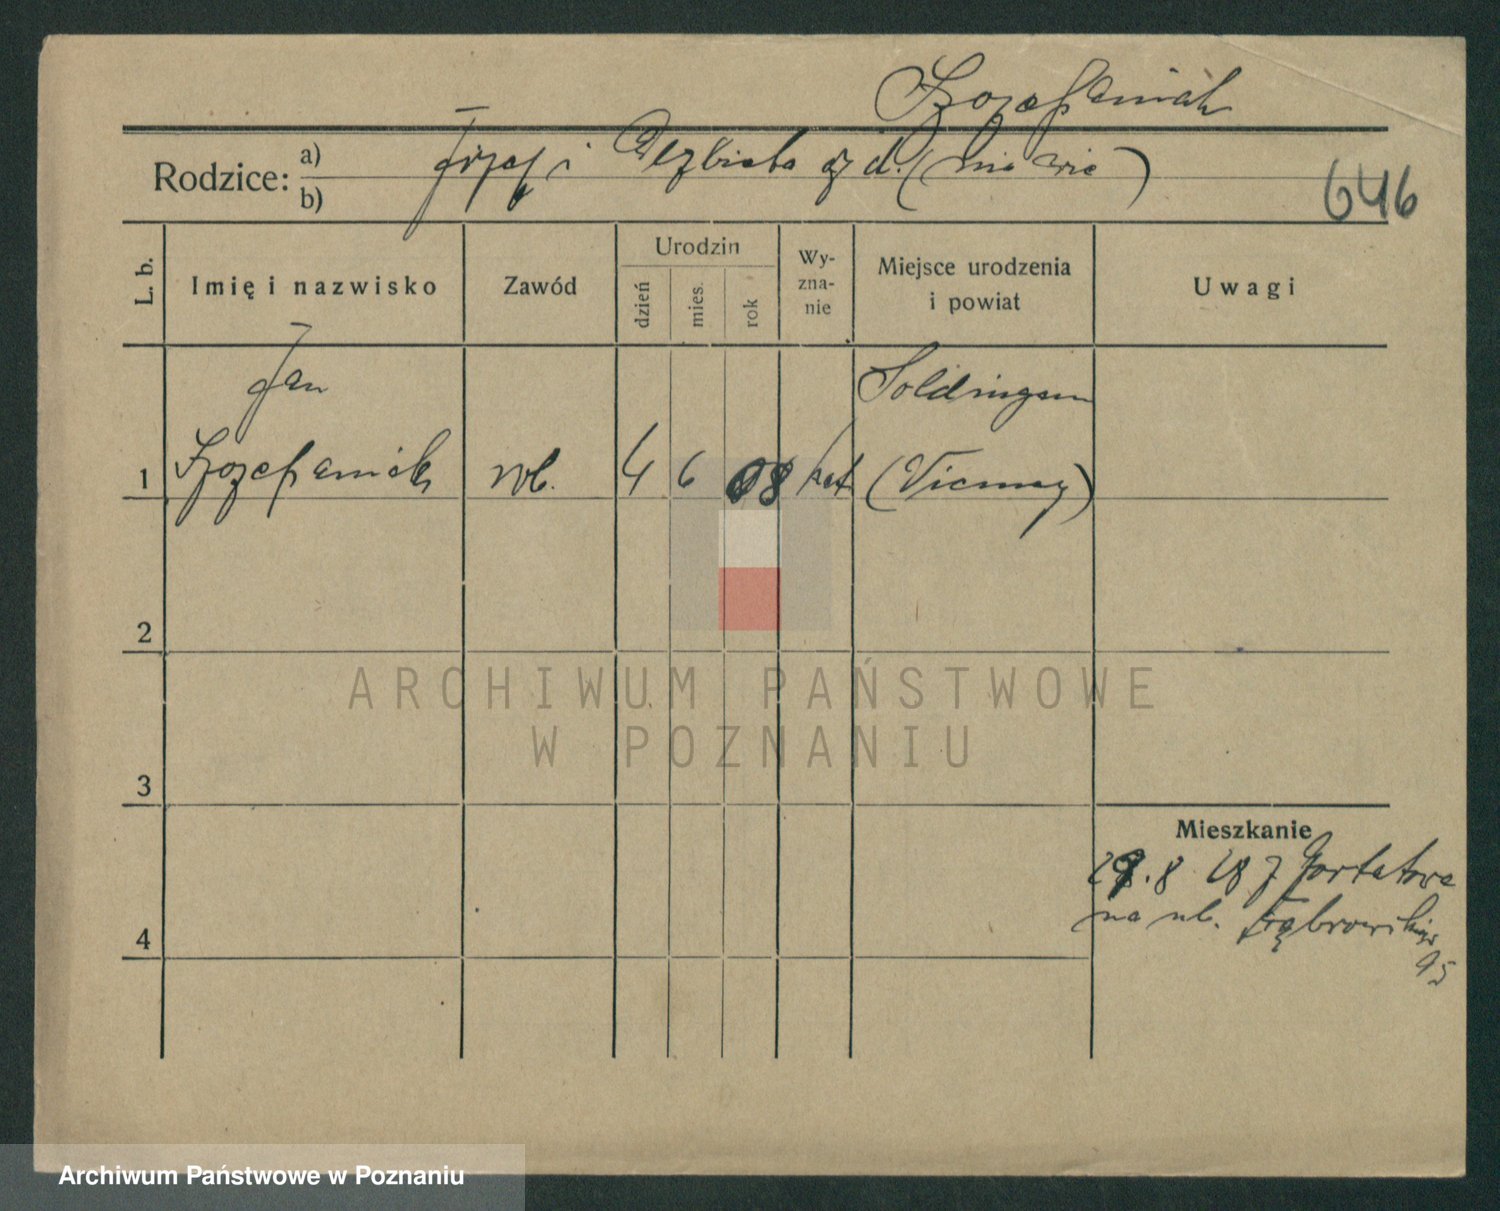 Szczepaniak
Rodzice: a) Józef i Elzbieta z d. (nie wie)
b)
646
L. b.
Imię i nazwisko
Zawód
Urodzin
dzień
mies.
rok
Wy-
zna-
nie
Miejsce urodzenia
i powiat
Uwagi
Jan
Szczepaniak
1
rob.
4
6
08
kat
Soldingen
2
3
4
Mieszkanie
8 28 z
na ul. Dąbrowskiego
95
ARCHIWUM PAŃSTWOWE
W POZNANIU
Archiwum Państwowe w Poznaniu